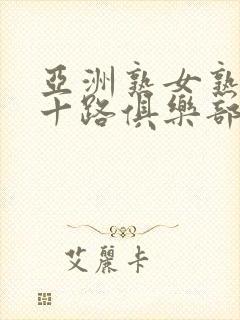 亞洲熟女熟
十路俱樂部
艾麗卡